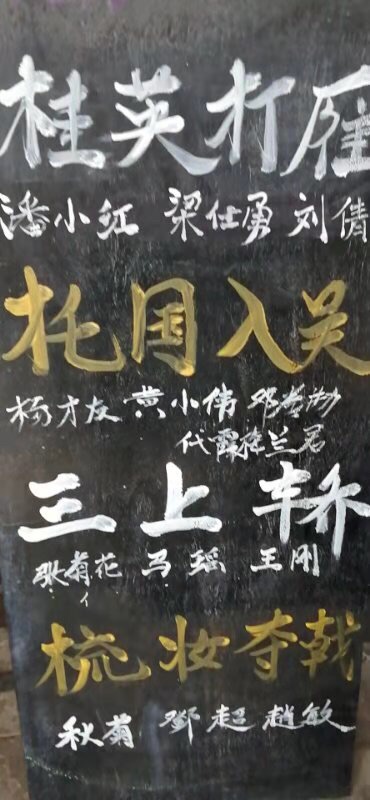 桂英打雁
潘小红 梁仕勇 刘倩
托国入吴
杨才友 黄小伟
代霞 兰君
三上轿
张菊花 马瑶 王刚
梳妆夺戟
秋菊 邓超 赵敏